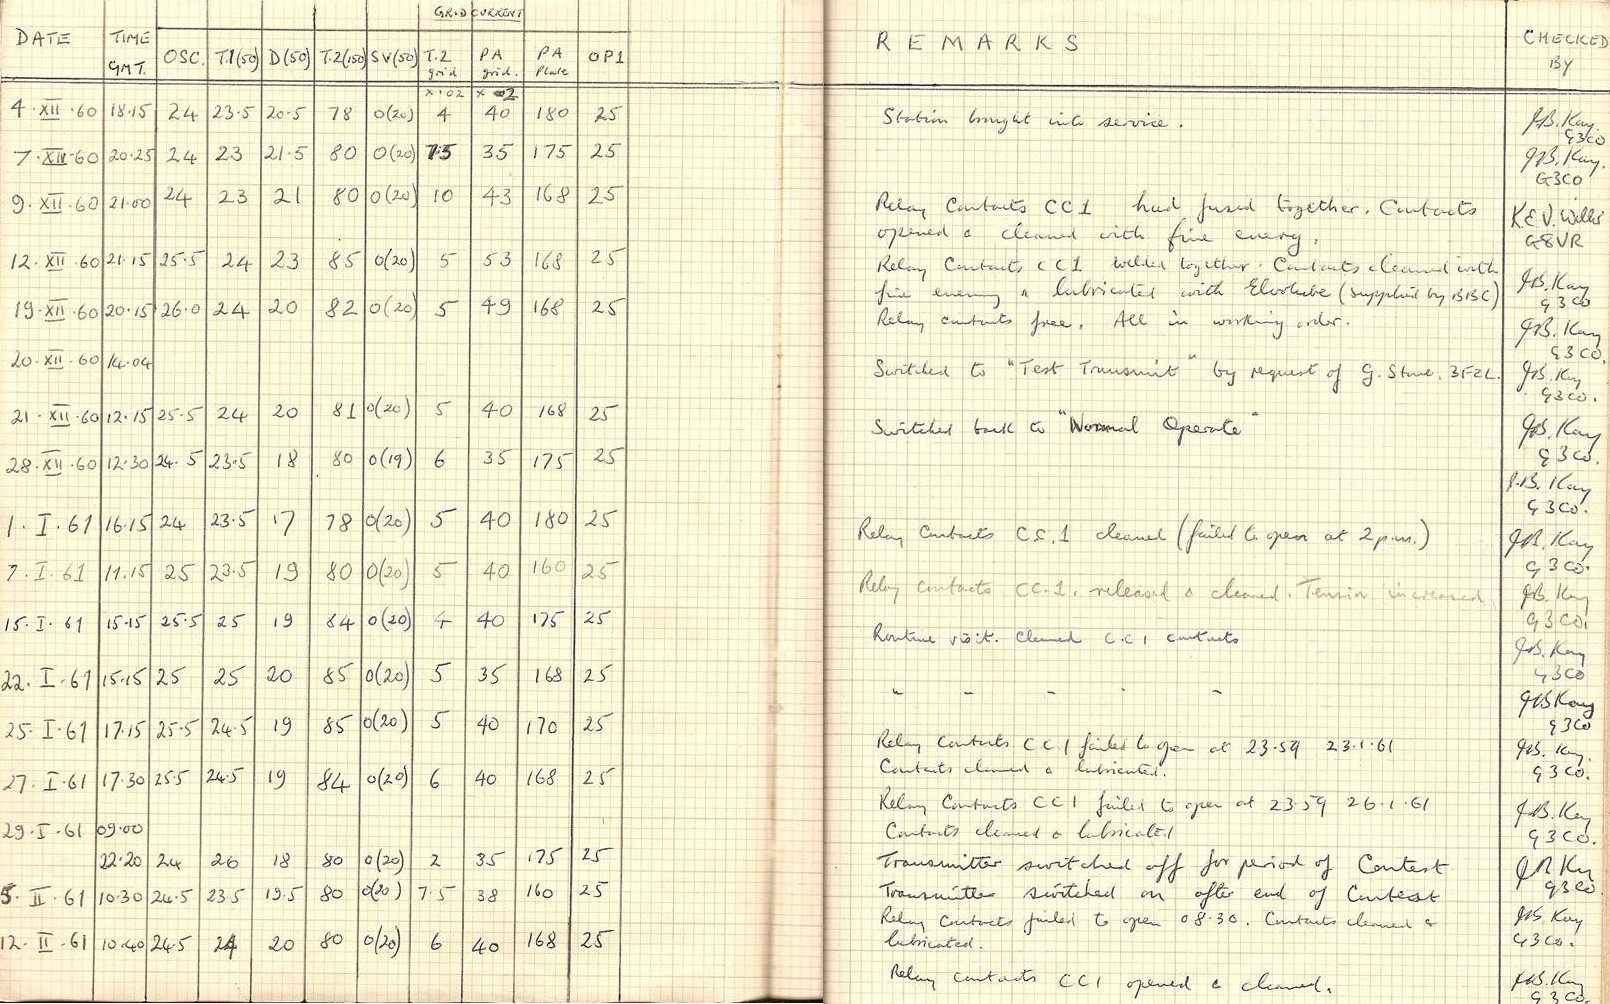 GRID CURRENT
DATE TIME GMT. OSC. T.1(50) D(50) T.2(150) SV(50) T.2 grid PA grid. PA Plate OP1
x .02 x 2
4·XII·60 18·15 24 23·5 20·5 78 0(20) 4 40 180 25
7·XII·60 20·25 24 23 21·5 80 0(20) 7.5 35 175 25
9·XII·60 21·00 24 23 21 80 0(20) 10 43 168 25
12·XII·60 21·15 25·5 24 23 85 0(20) 5 53 168 25
19·XII·60 20·15 26·0 24 20 82 0(20) 5 49 168 25
20·XII·60 14·04
21·XII·60 12·15 25·5 24 20 81 0(20) 5 40 168 25
28·XII·60 12·30 24·5 23·5 18 80 0(19) 6 35 175 25
1·I·61 16·15 24 23·5 17 78 0(20) 5 40 180 25
7·I·61 11·15 25 23·5 19 80 0(20) 5 40 160 25
15·I·61 15·15 25·5 25 19 84 0(20) 4 40 175 25
22·I·61 15·15 25 25 20 85 0(20) 5 35 168 25
25·I·61 17·15 25·5 24·5 19 85 0(20) 5 40 170 25
27·I·61 17·30 25·5 24·5 19 84 0(20) 6 40 168 25
29·I·61 09·00
22·20 24 26 18 80 0(20) 2 35 175 25
5·II·61 10·30 24·5 23·5 19·5 80 0(20) 7·5 38 160 25
12·II·61 10·40 24·5 24 20 80 0(20) 6 40 168 25
REMARKS CHECKED BY
Station brought into service. J.B. Kay. G3CO
J.B. Kay. G3CO
Relay Contacts CC1 had fused together. Contacts K.E.V. Willis
opened & cleaned with fine emery. G8VR
Relay Contacts CC1 welded together. Contacts cleaned with J.B. Kay
fine emery & lubricated with Electrolube (supplied by BBC) G3CO
Relay contacts free. All in working order. J.B. Kay G3CO.
Switched to "Test Transmit" by request of G. Stone. 3FZL. J.B. Kay G3CO.
Switched back to "Normal Operate" J.B. Kay G3CO.
J.B. Kay G3CO.
Relay Contacts CC.1 cleaned (failed to open at 2 p.m.) J.B. Kay G3CO.
Relay contacts CC.1. released & cleaned. Tension increased J.B. Kay G3CO.
Routine visit. Cleaned C.C1 contacts J.B. Kay G3CO
" " " " " J.B Kay G3CO
Relay Contacts CC.1 failed to open at 23·59 23·1·61 J.B. Kay.
Contacts cleaned & lubricated. G3CO.
Relay Contacts CC1 failed to open at 23·59 26·1·61 J.B. Kay
Contacts cleaned & lubricated G3CO.
Transmitter switched off for period of Contest J.B. Kay
Transmitter switched on after end of Contest G3CO
Relay Contacts failed to open 08·30. Contacts cleaned & J.B. Kay
lubricated. G3CO.
Relay contacts CC1 opened & cleaned. J.B. Kay
G3CO.